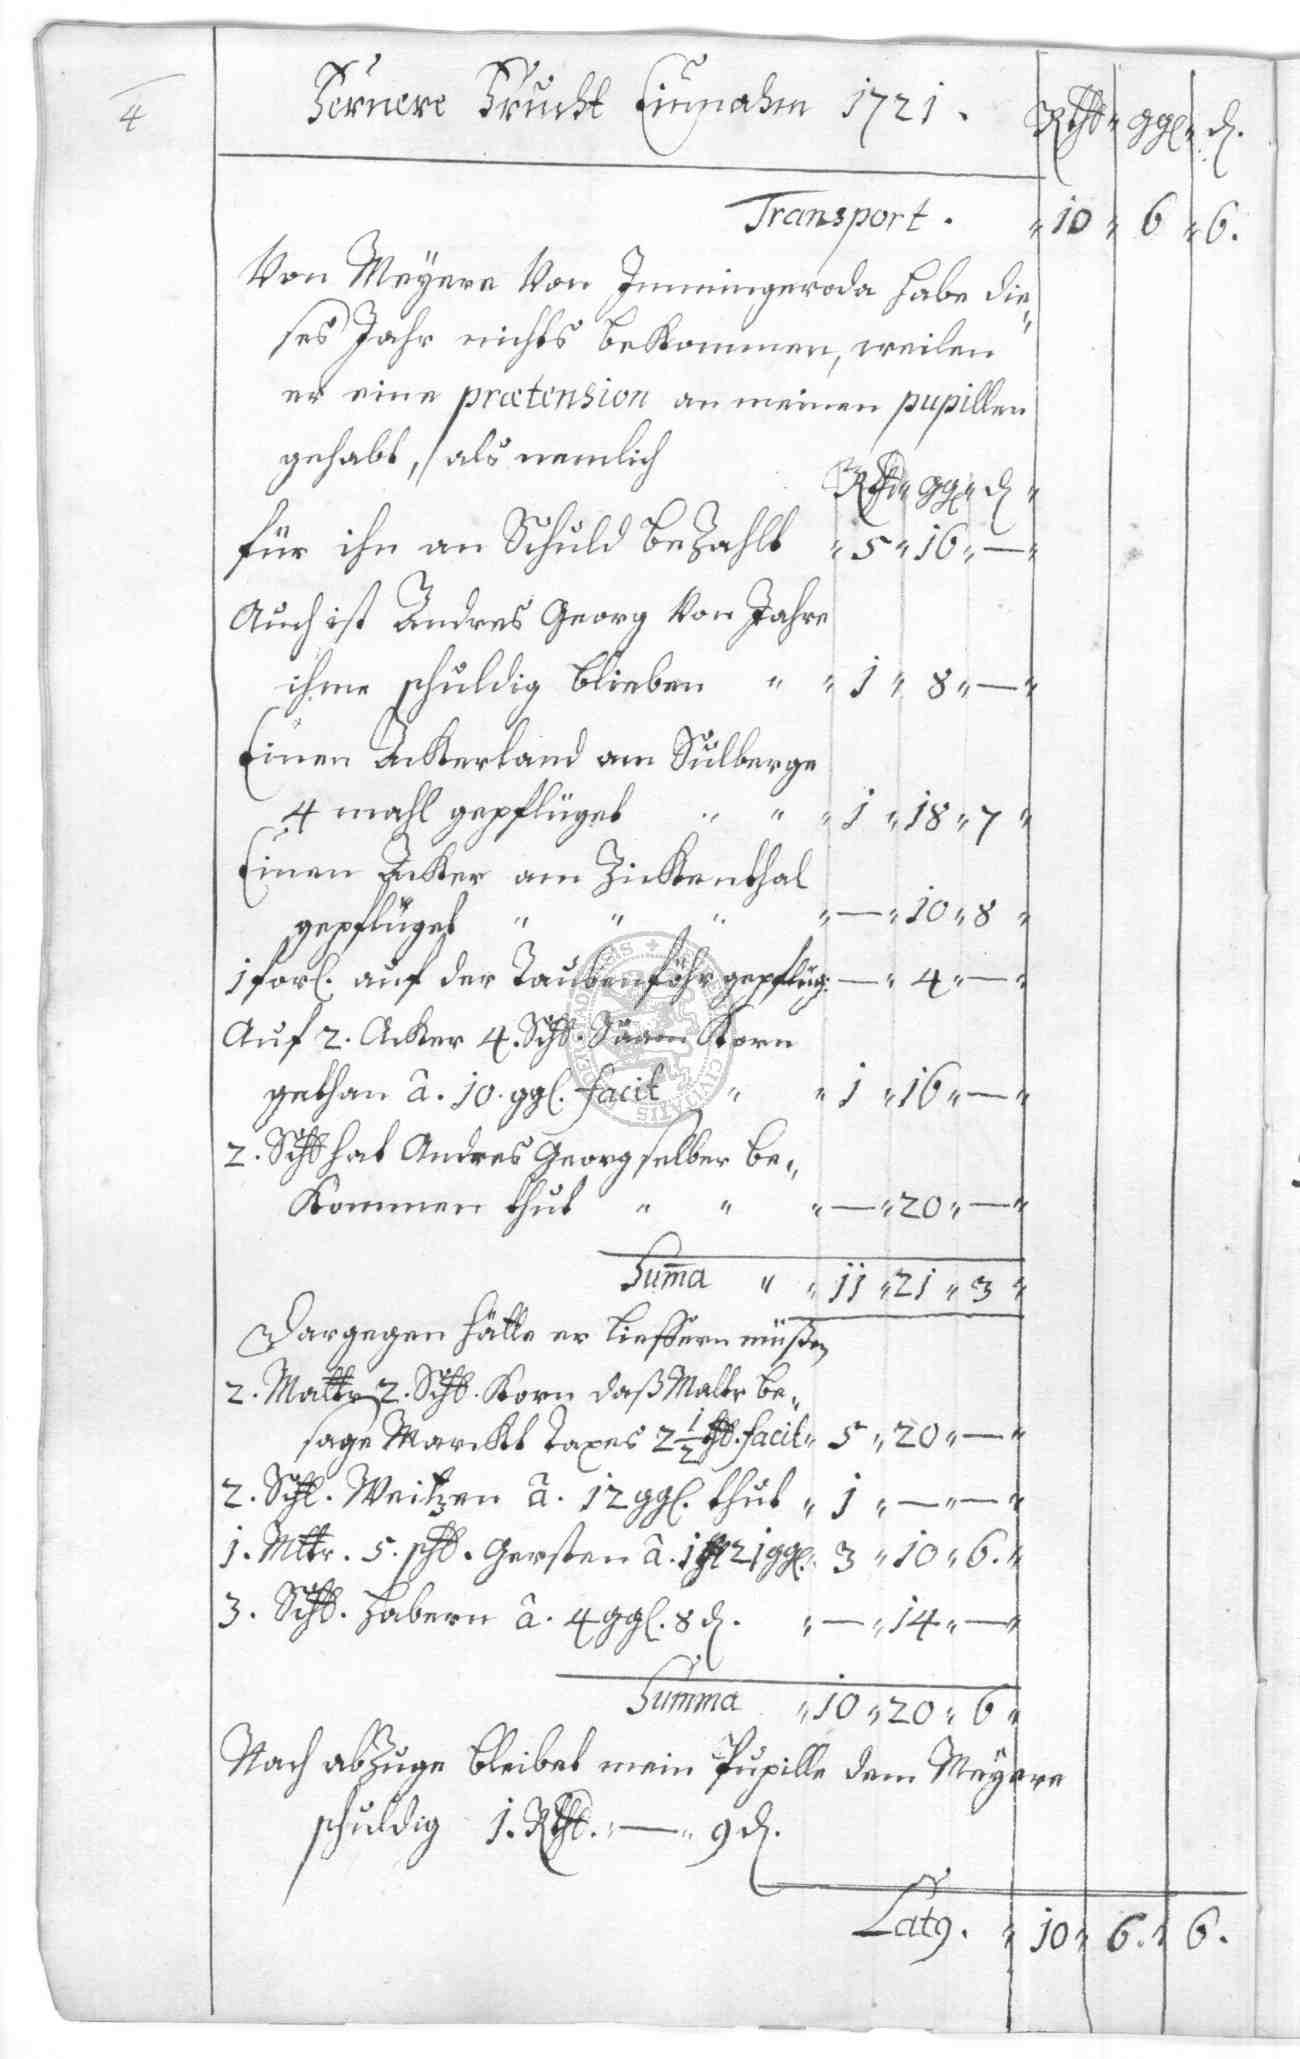 4
Fernere Frucht Einnahm 1721. Rthl ggl d.
Transport. " 10 " 6 " 6.
Von Meyere von Immingeroda habe die„
ses Jahr nichts bekommen, weilen
er eine prætension an meinen pupillen
gehabt, als nemlich
Rthl ggl d "
für ihn an Schuld bezahlt " 5 " 16 " — "
Auch ist Andres Georg von Jahre
ihme schuldig blieben " " 1 " 8 " — "
Einen Ackerland am Sulberge
4 mahl gepflüget " " " 1 " 18 " 7 "
Einen Acker am Zickenthal
gepflüget " " " " — " 10 " 8 "
1 forl. auf der Taubenföhr gepflüg: — " 4 " — "
Auf 2. Acker 4. Schfl. Saam Korn
gethan â. 10. ggl. facit " " 1 " 16 " — "
2. Schfl hat Andres Georg selber be„
kommen thut " " " — " 20 " — "
Summa " " 11 " 21 " 3 "
Dargegen hätte er lieffern müßen
2. Maltr 2. Schfl. Korn daß Maltr be„
sage Marckt Taxes 2 1/2 thl. facit " 5 " 20 " — "
2. Schfl. Weitzen â. 12 ggl. thut " 1 " — " — "
1. Mltr. 5. schfl. Gersten â. 1 thl 21 ggl. " 3 " 10 " 6. "
3. Schfl. Habern â. 4 ggl. 8 d. " — " 14 " — "
Summa " 10 " 20 " 6 "
Nach abzuge bleibet mein Pupille dem Meyere
schuldig 1. Rthl. " — " 9 d.
Lat9. " 10 " 6. " 6.